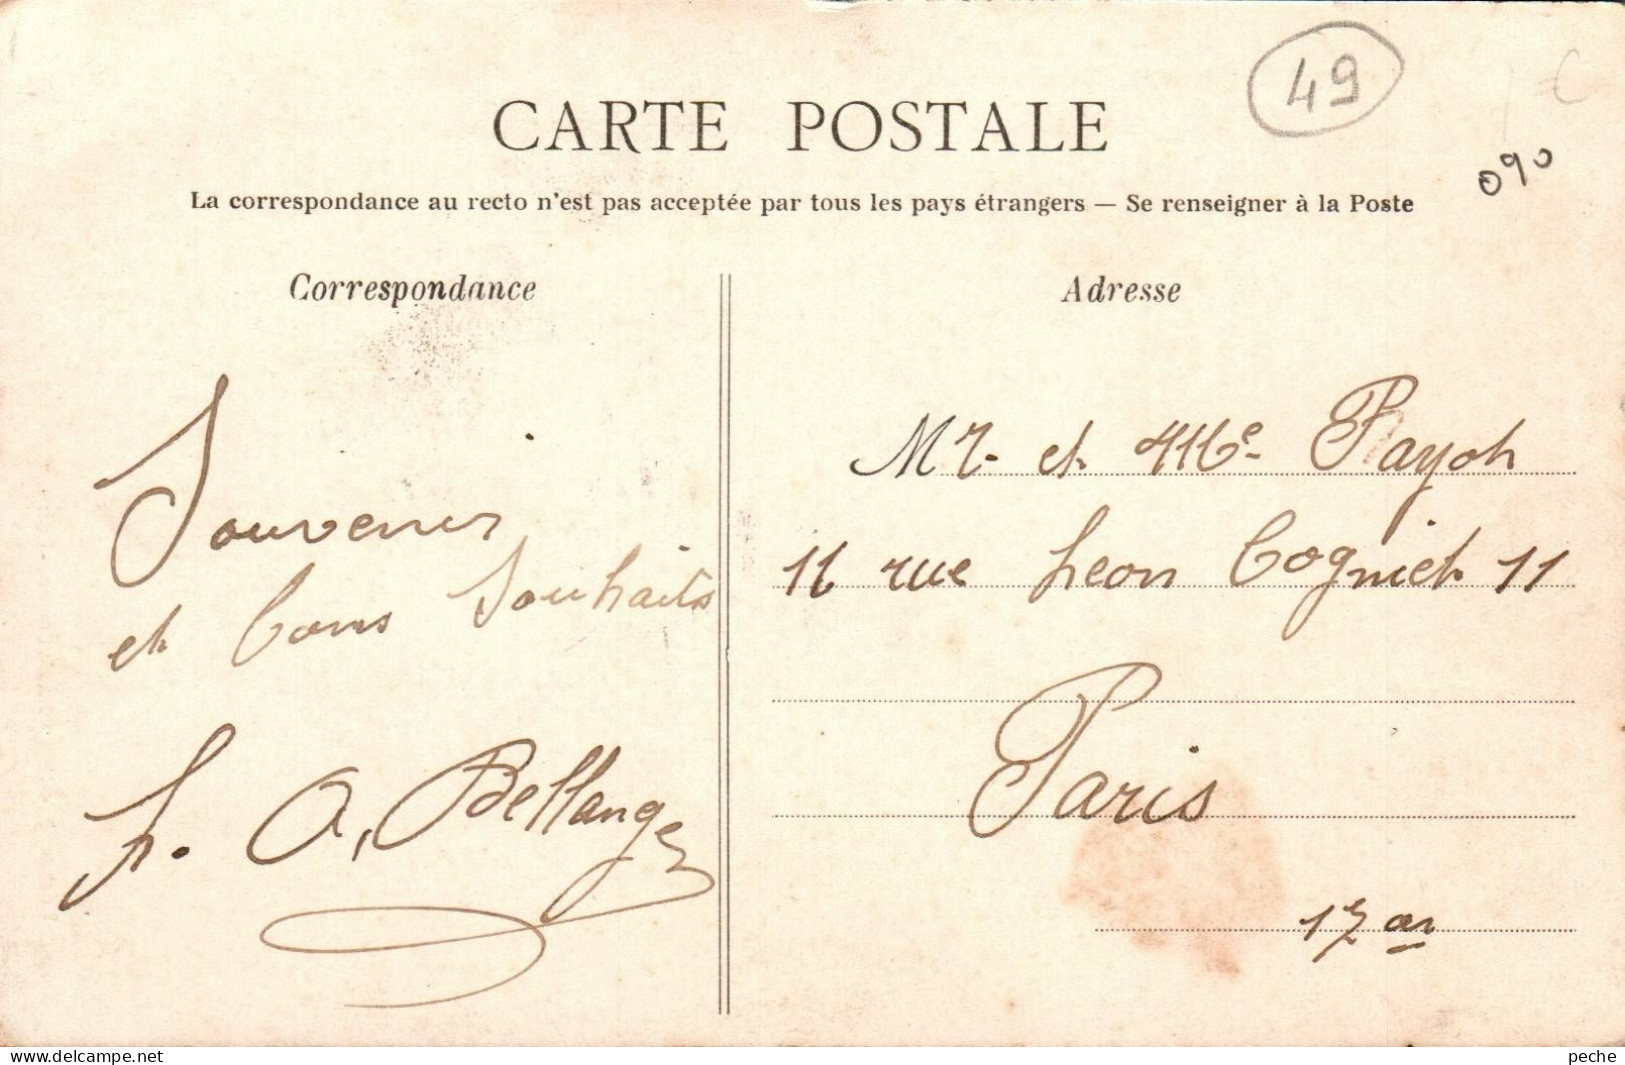 49
090
CARTE POSTALE
La correspondance au recto n'est pas acceptée par tous les pays étrangers — Se renseigner à la Poste
Correspondance
Souvenir
et bons Souhaits
A. Bellanger
Adresse
Mr. et Mme. Payot
11 rue Leon Cogniet 11
Paris
17 ar
www.delcampe.net
peche